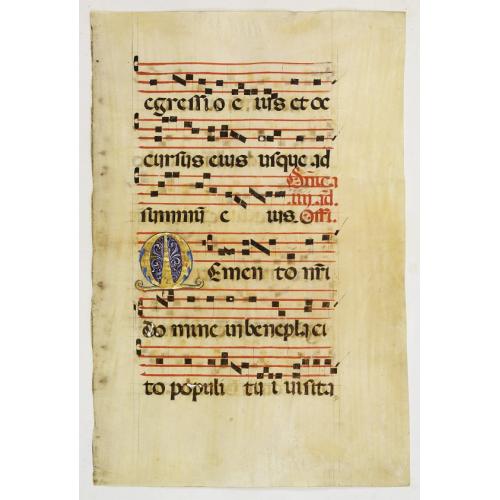 egressio e ius et oc
cursus eius usque ad
summũ e ius.
iiij. ad.
Memen to nr̃i
Do mine in beneplaci
to populi tu i uisita